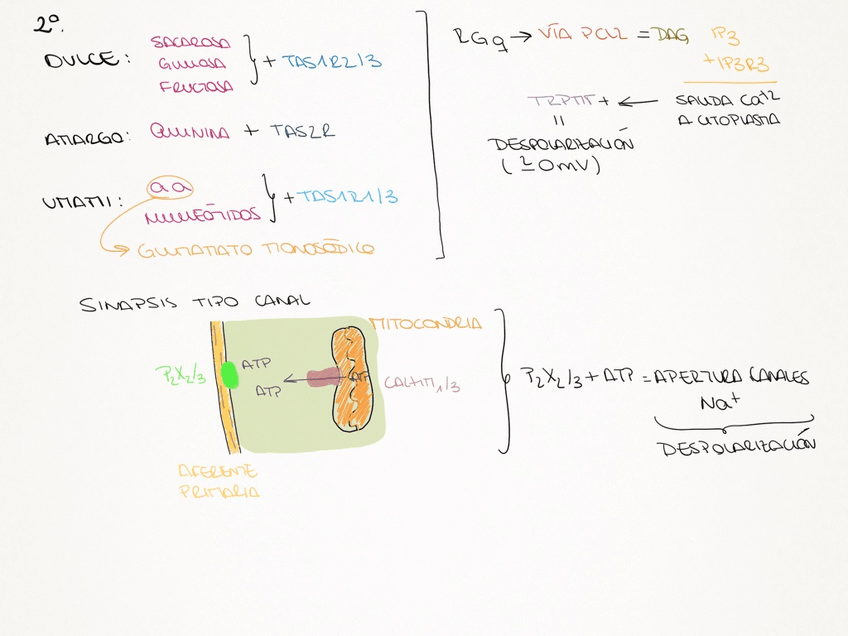 2º.
DULCE: SACAROSA
GLUCOSA + TAS1R2/3
FRUCTOSA
AMARGO: QUININA + TAS2R
UMAMI: aa
NUCLEÓTIDOS + TAS1R1/3
GLUTAMATO MONOSÓDICO
RGq → VÍA PCL2 = DAG IP3
+ IP3R3
TRPM5 + ← SALIDA Ca+2
A CITOPLASMA
=
DESPOLARIZACIÓN
(≥0mV)
SINAPSIS TIPO CANAL
MITOCONDRIA
P2X2/3 ATP
ATP ← ATP CALHM1/3
AFERENTE
PRIMARIA
P2X2/3 + ATP = APERTURA CANALES
Na+
DESPOLARIZACIÓN